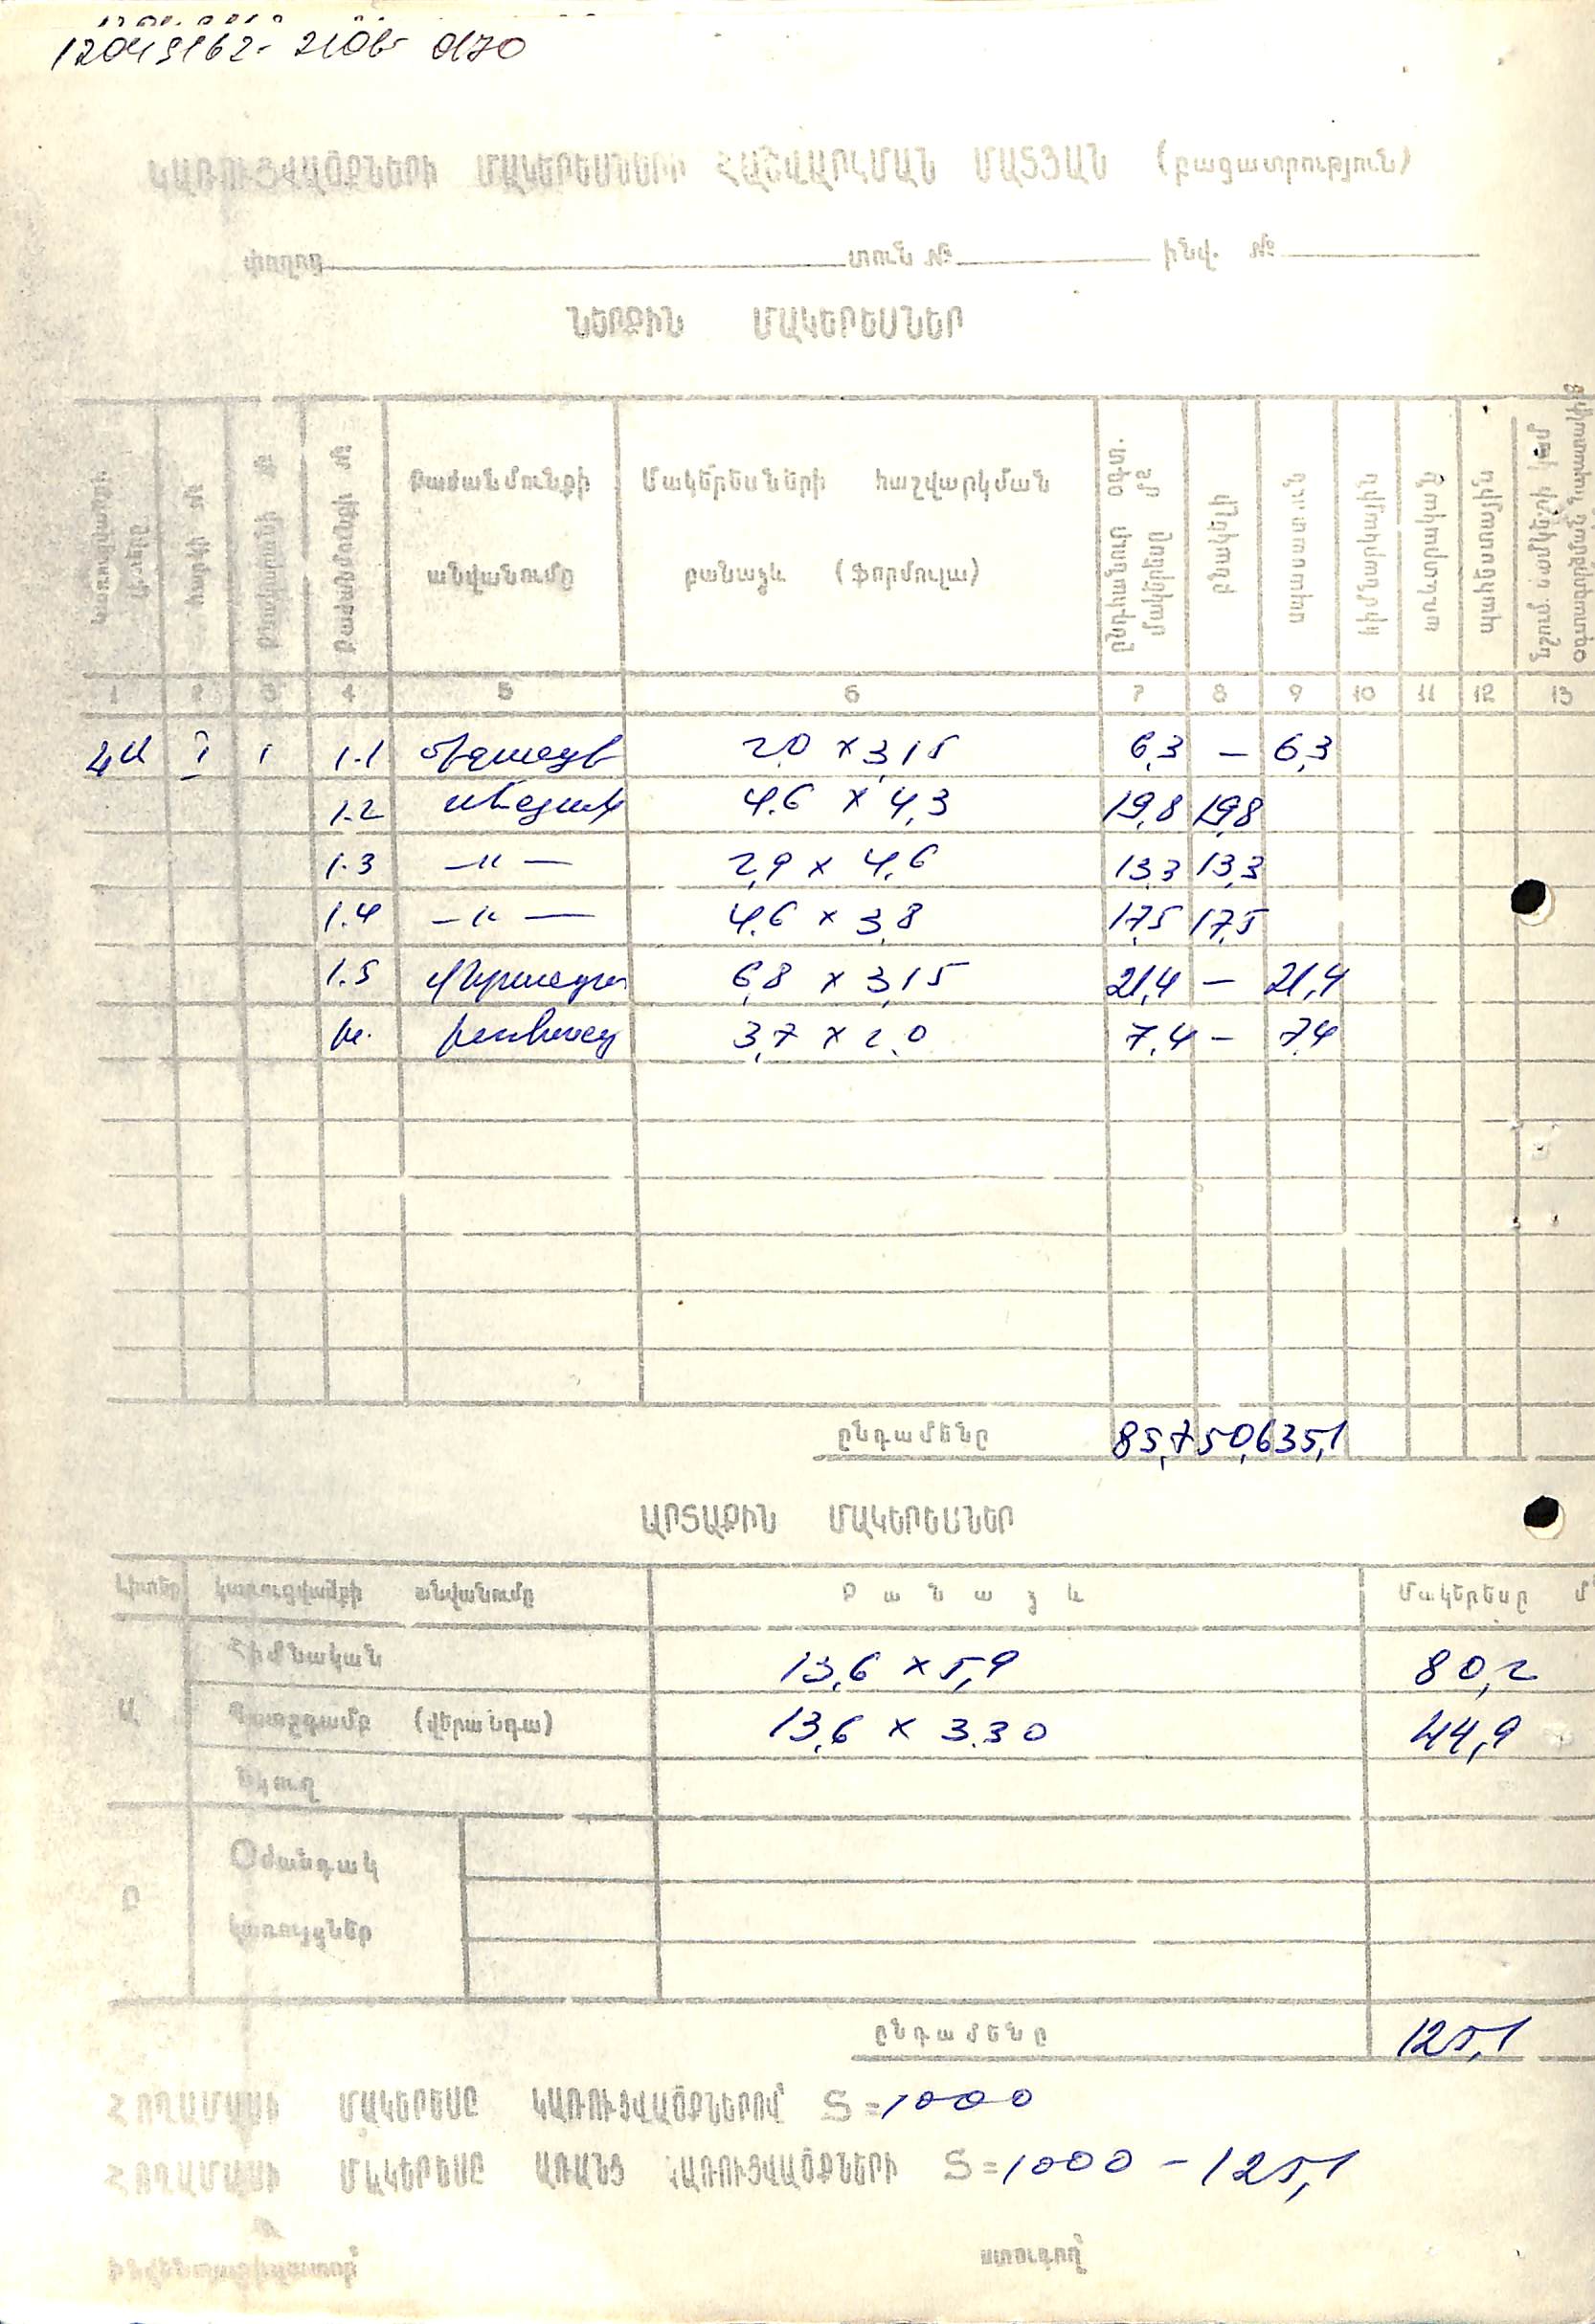 12049162- 2106- 0170
ԿԱՌՈՒՑՎԱԾՔՆԵՐԻ ՄԱԿԵՐԵՍՆԵՐԻ ՀԱՇՎԱՐԿՄԱՆ ՄԱՏՅԱՆ (բացատրություն)
փողոց տուն № ինվ. №
ՆԵՐՔԻՆ ՄԱԿԵՐԵՍՆԵՐ
Կառուցվածքի հարկի № Բնակարանի № Բաժանմունքի № Բաժանմունքի անվանումը Մակերեսների հաշվարկման բանաձև (Ֆորմուլա) Ընդհանուր օգտ. մակերեսը մ² բնակելի օժանդակ
1 2 3 4 5 6 7 8 9 10 11 12 13
I 1 1.1 միջանցք 2,0 x 3,15 6,3 – 6,3
1.2 սենյակ 4.6 x 4,3 19,8 19,8
1.3 –〃– 2,9 x 4,6 13,3 13,3
1.4 –〃– 4.6 x 3,8 17,5 17,5
1.5 6,8 x 3,15 21,4 – 21,4
խ. խոհանոց 3,7 x 2,0 7,4 – 7,4
ընդամենը 85,7 50,6 35,1
ԱՐՏԱՔԻՆ ՄԱԿԵՐԵՍՆԵՐ
Լիտեր կառուցվածքի անվանումը Բանաձև Մակերեսը մ²
Ա Հիմնական 13,6 x 5,9 80,2
Պատշգամբ (վերանդա) 13,6 x 3.30 44,9
Նկուղ
Բ Օժանդակ
կառույցներ
ընդամենը 125,1
ՀՈՂԱՄԱՍԻ ՄԱԿԵՐԵՍԸ ԿԱՌՈՒՑՎԱԾՔՆԵՐՈՎ S=1000
ՀՈՂԱՄԱՍԻ ՄԱԿԵՐԵՍԸ ԱՌԱՆՑ ԿԱՌՈՒՑՎԱԾՔՆԵՐԻ S=1000 – 125,1
ստուգող՝